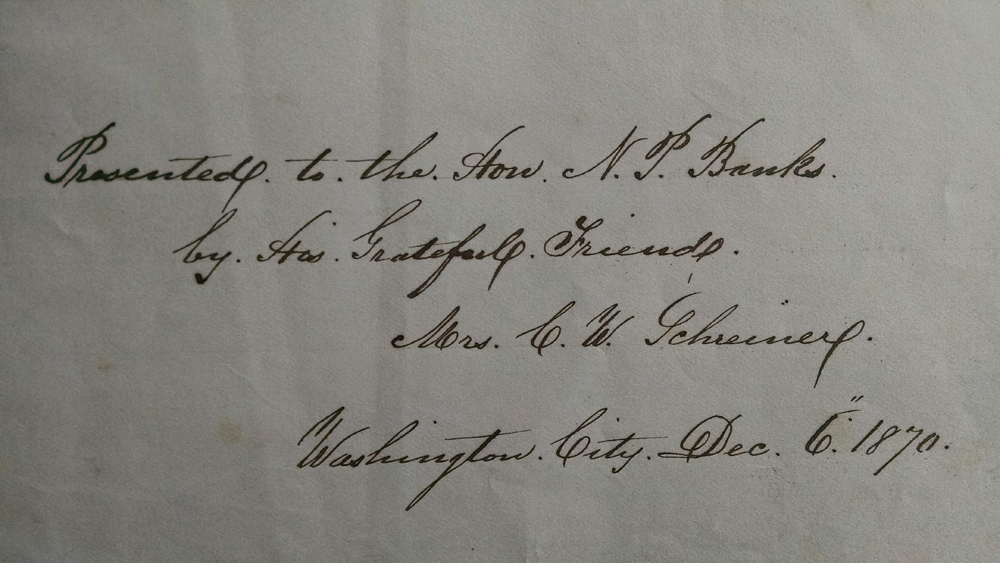 Presented. to. the. Hon. N. P. Banks.
by. His. Grateful. Friend.
Mrs. C. W. Schreiner.
Washington. City. Dec. 6.″ 1870.